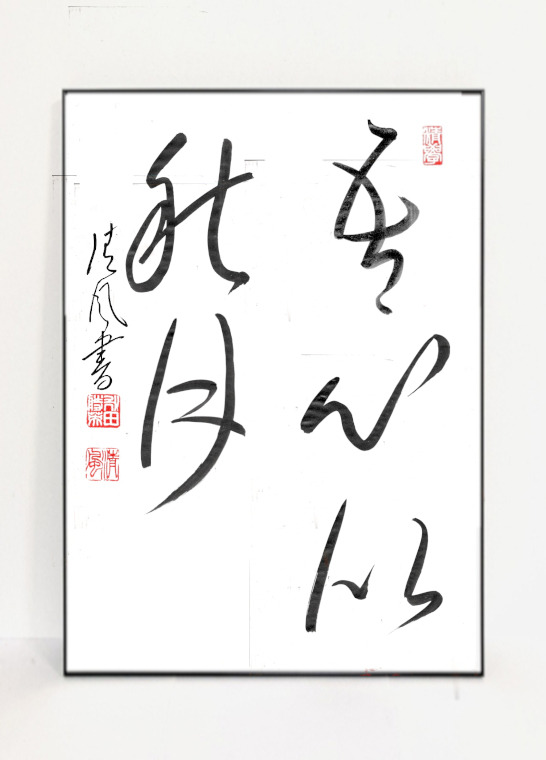 吾心似
秋月
清风書
清風